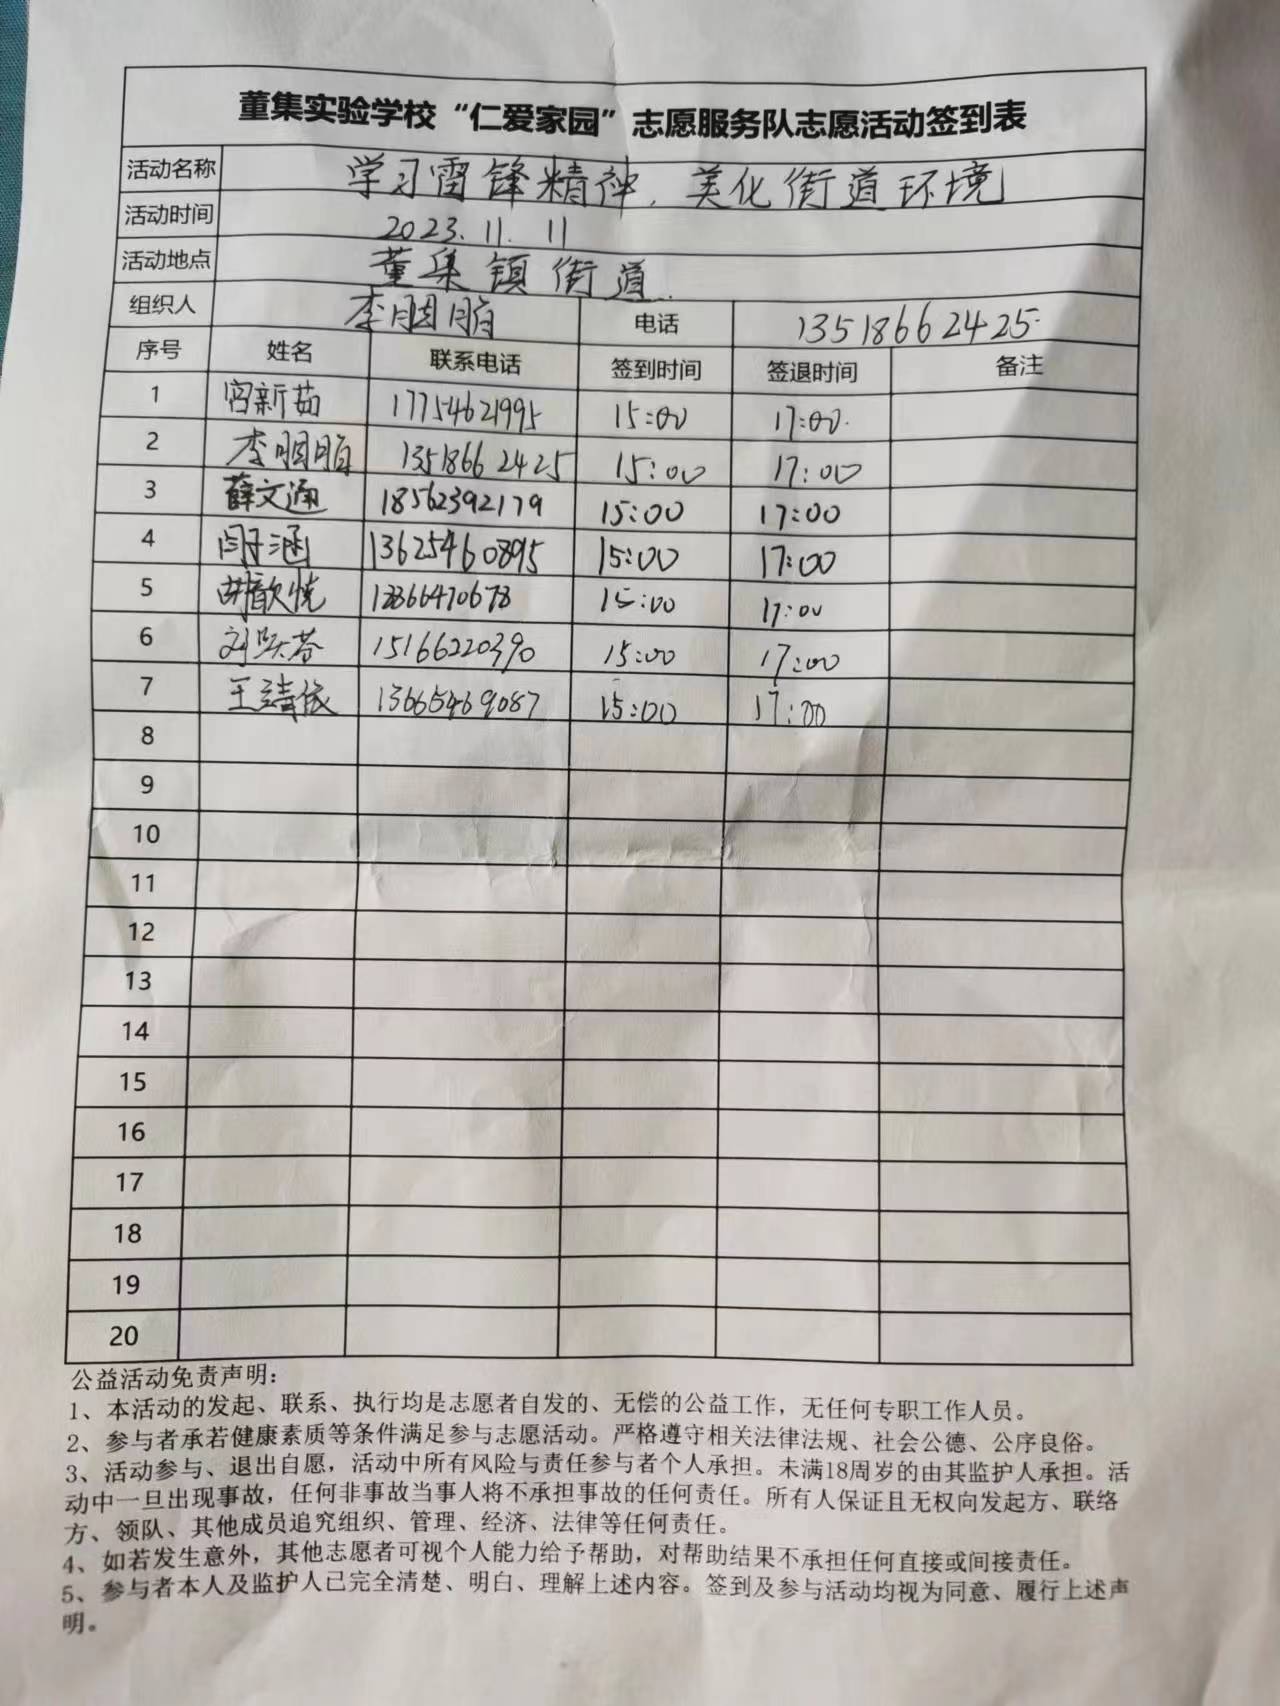 董集实验学校“仁爱家园”志愿服务队志愿活动签到表
活动名称 学习雷锋精神，美化街道环境
活动时间 2023.11.11
活动地点 董集镇街道
组织人 李胭脂 电话 13518662425
序号 姓名 联系电话 签到时间 签退时间 备注
1 宫新茹 17754621995 15:00 17:00
2 李胭脂 13518662425 15:00 17:00
3 薛文通 18562392179 15:00 17:00
4 闫子涵 13625460895 15:00 17:00
5 15:00 17:00
6 15166220390 15:00 17:00
7 王靖依 13665469087 15:00 17:00
8
9
10
11
12
13
14
15
16
17
18
19
20
公益活动免责声明：
1、本活动的发起、联系、执行均是志愿者自发的、无偿的公益工作，无任何专职工作人员。
2、参与者承若健康素质等条件满足参与志愿活动。严格遵守相关法律法规、社会公德、公序良俗。
3、活动参与、退出自愿，活动中所有风险与责任参与者个人承担。未满18周岁的由其监护人承担。活
动中一旦出现事故，任何非事故当事人将不承担事故的任何责任。所有人保证且无权向发起方、联络
方、领队、其他成员追究组织、管理、经济、法律等任何责任。
4、如若发生意外，其他志愿者可视个人能力给予帮助，对帮助结果不承担任何直接或间接责任。
5、参与者本人及监护人已完全清楚、明白、理解上述内容。签到及参与活动均视为同意、履行上述声
明。